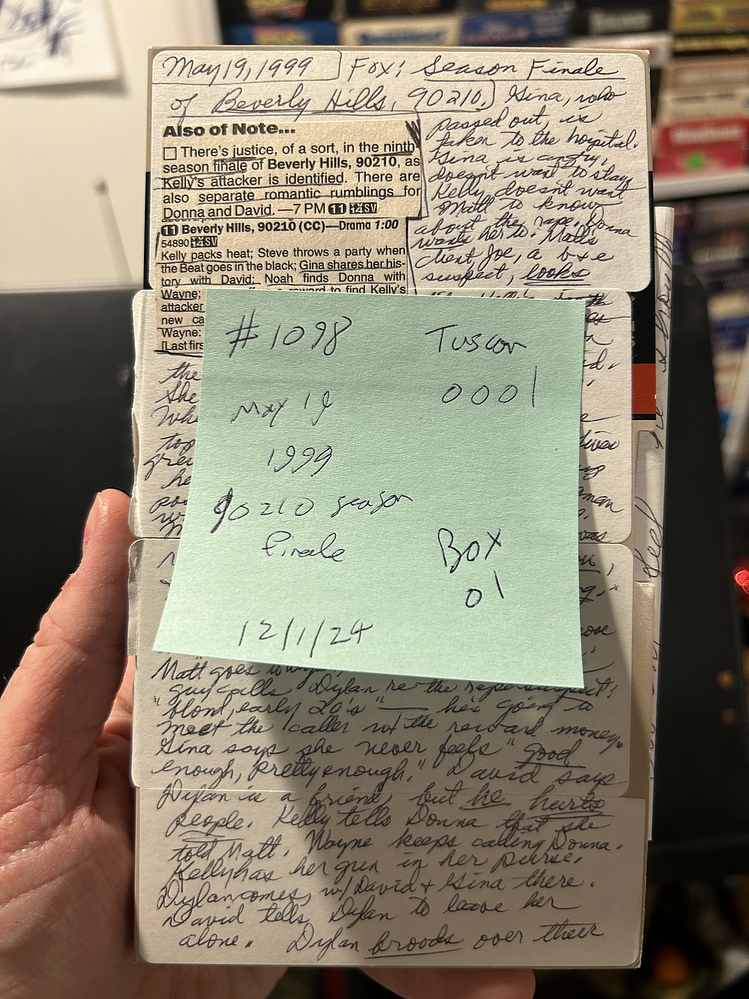 May 19, 1999 Fox: Season Finale
of Beverly Hills, 90210. Gina, who
passed out, is
taken to the hospital.
Gina is angry,
doesn't want to stay
Kelly doesn't want
Matt to know
about the rape. Donna
wants her to. Matt's
client, Joe, a b+e
suspect, looks
Also of Note...
There's justice, of a sort, in the ninth-
season finale of Beverly Hills, 90210, as
Kelly's attacker is identified. There are
also separate romantic rumblings for
Donna and David. —7 PM 11
11 Beverly Hills, 90210 (CC)—Drama 1:00
54890
Kelly packs heat; Steve throws a party when
the Beat goes in the black; Gina shares her his-
tory with David; Noah finds Donna with
Wayne; reward to find Kelly's
attacker
new ca
Wayne:
[Last firs
#1098 Tuscon
0001
May 19
1999
90210 season
finale
Box
01
12/1/24
the
She
Whe
top
grea
he
Matt goes
guy calls Dylan re the rape suspect!
"blond, early 20's" — he's going to
meet the caller w/ the reward money.
Gina says she never feels "good
enough, pretty enough." David says
Dylan is a friend, but he hurts
people. Kelly tells Donna that she
told Matt. Wayne keeps calling Donna.
Kelly has her gun in her purse.
Dylan comes, w/ David + Gina there.
David tells Dylan to leave her
alone. Dylan broods over their